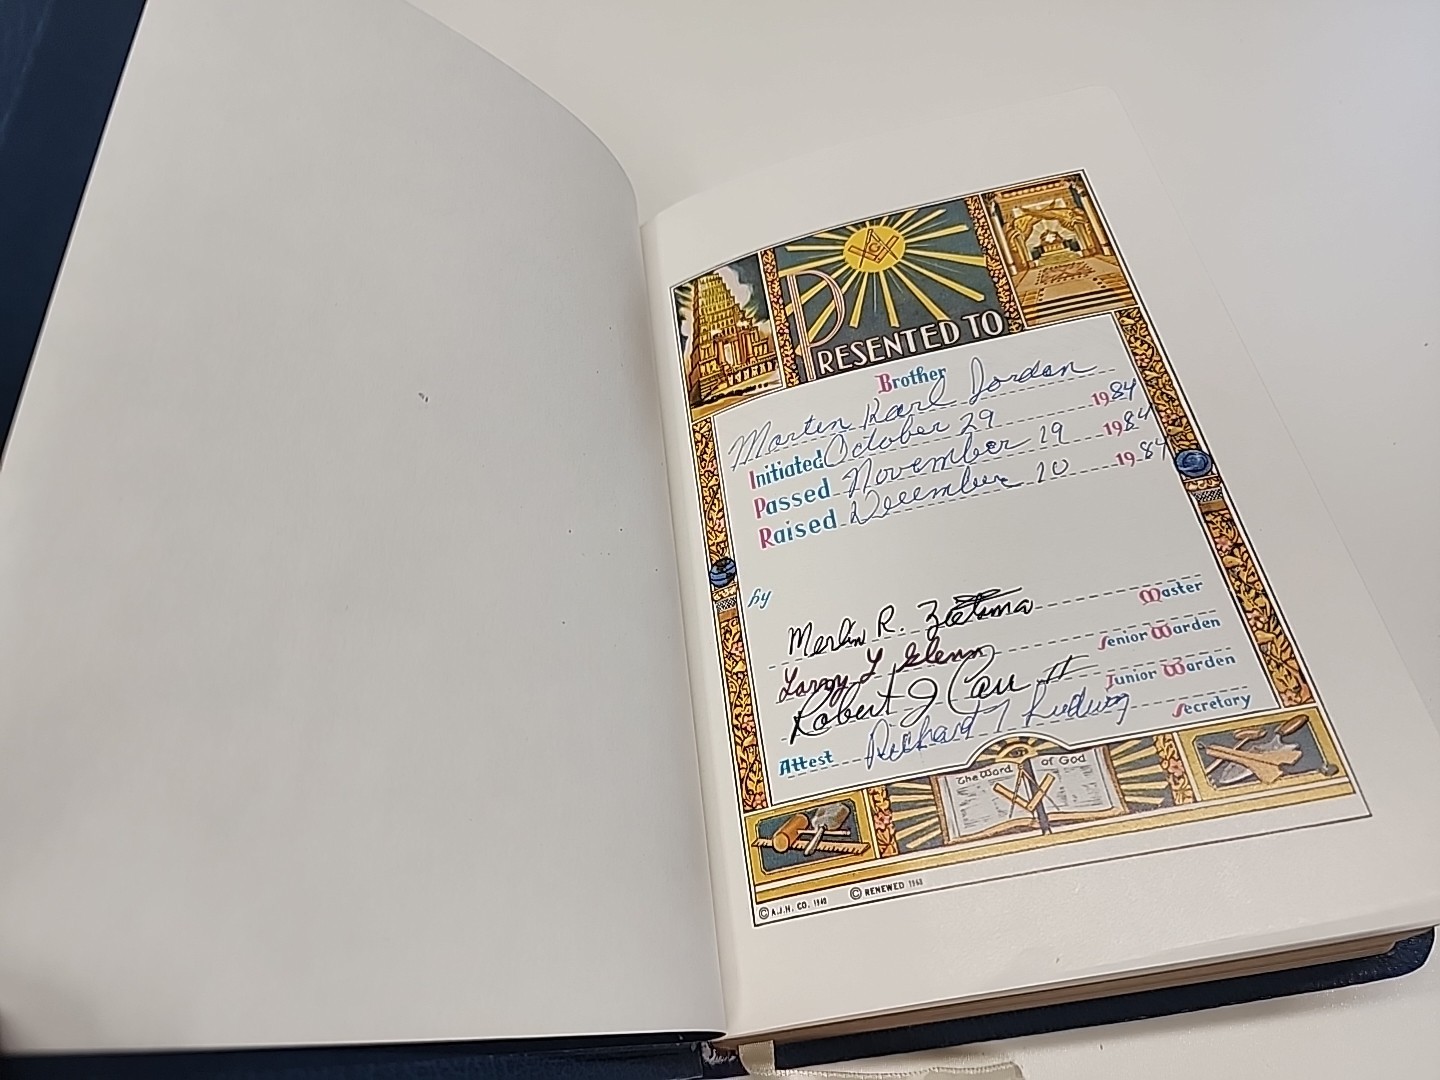 G
PRESENTED TO
Brother
Martin Karl Jordan
Initiated October 29 1984
Passed November 19 1984
Raised December 10 1984
by
Merlin R. Zietsma Master
Larry L Glenn Senior Warden
Robert J Carr II Junior Warden
Attest Richard T Ludwig Secretary
The Word of God
© A.J.H. CO. 1940 © RENEWED 1968